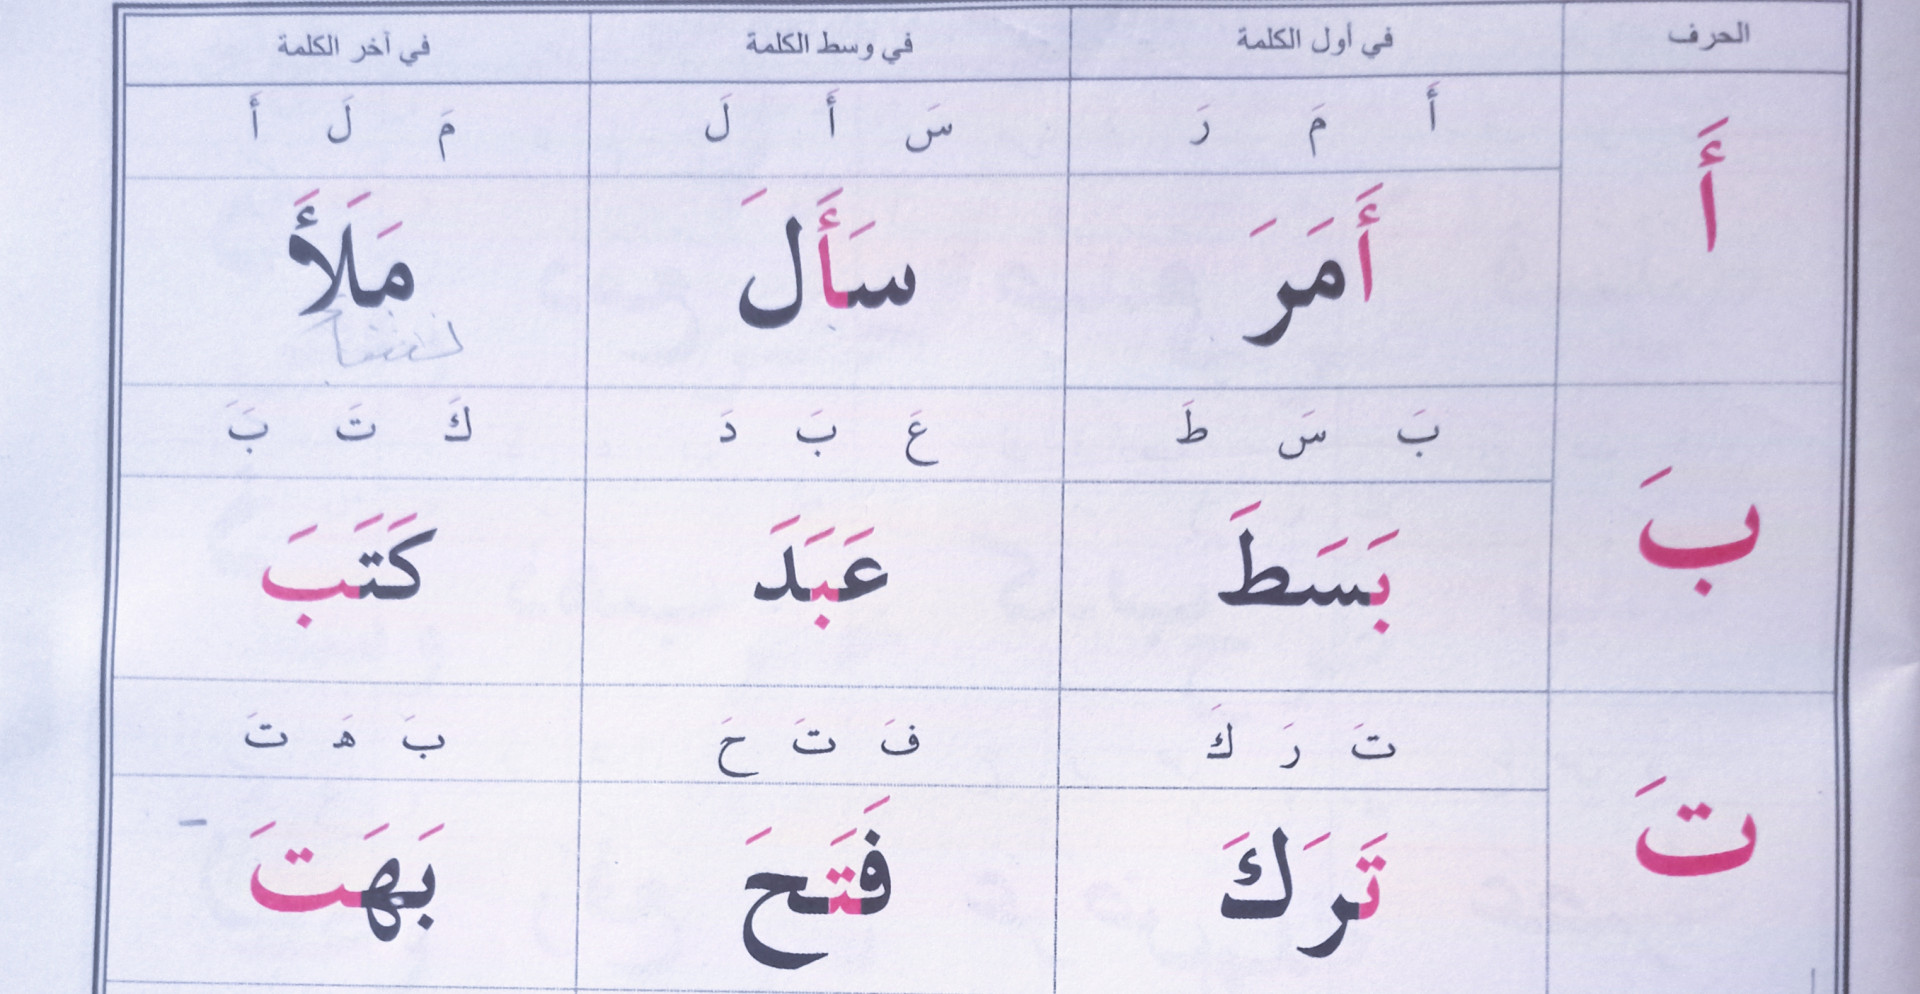 الحرف في أول الكلمة في وسط الكلمة في آخر الكلمة
أَ مَ رَ سَ أَ لَ مَ لَ أَ
أَ أَمَرَ سَأَلَ مَلَأَ
بَ سَ طَ عَ بَ دَ كَ تَ بَ
بَ بَسَطَ عَبَدَ كَتَبَ
تَ رَ كَ فَ تَ حَ بَ هَ تَ
تَ تَرَكَ فَتَحَ بَهَتَ